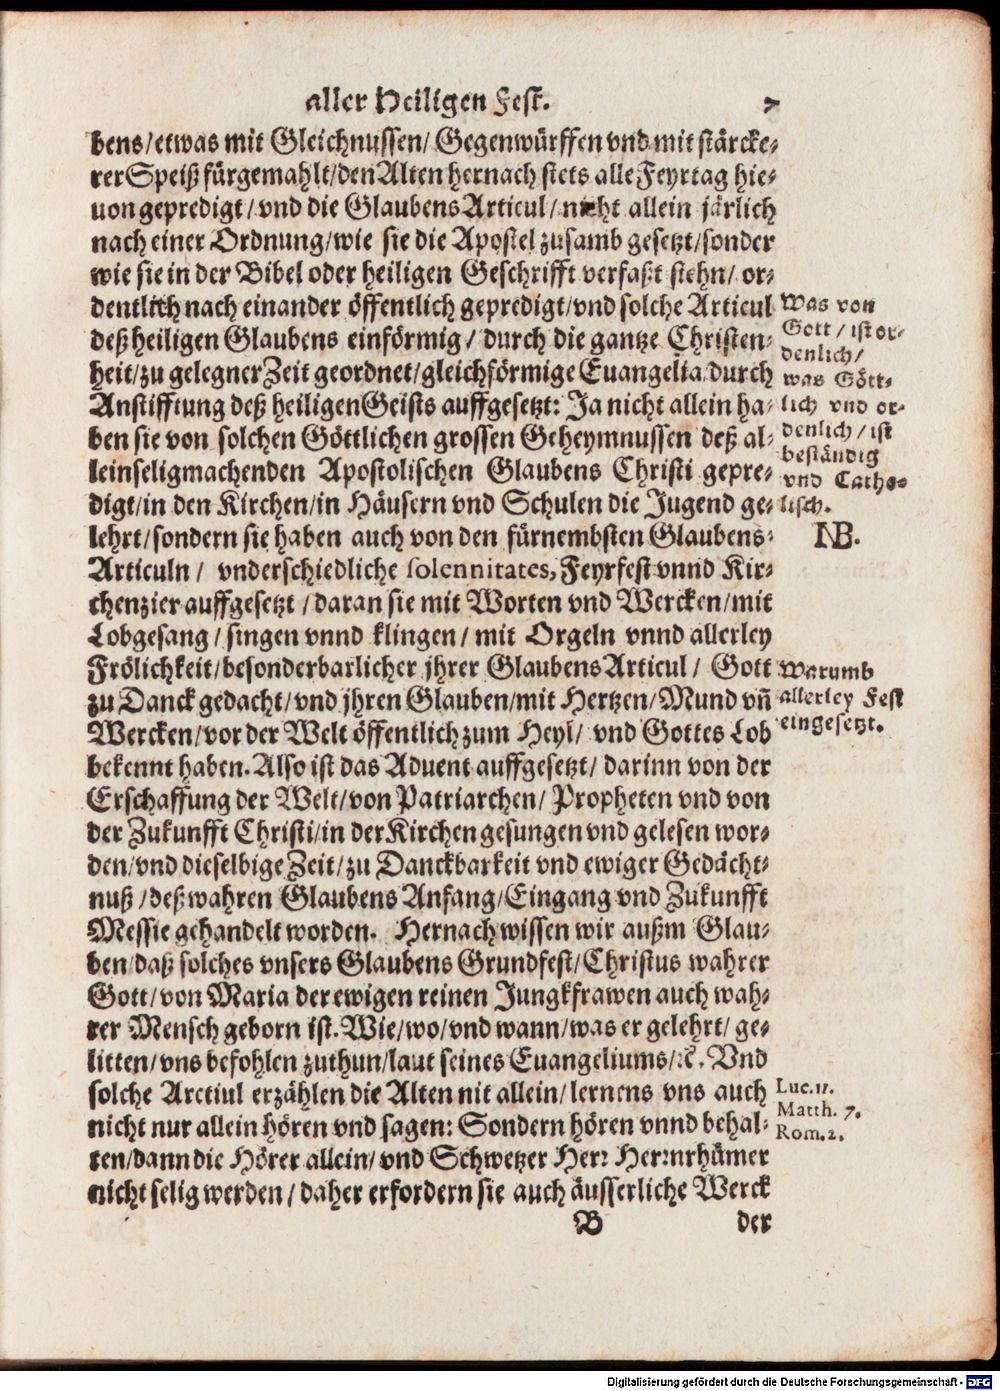 aller Heiligen Fest. 7
bens/etwas mit Gleichnussen/ Gegenwürffen vnd mit stärcke-
rer Speiß fürgemahlt/den Alten hernach stets alle Feyrtag hie-
uon gepredigt/ vnd die Glaubens Articul/ nicht allein järlich
nach einer Ordnung/wie sie die Apostel zusamb gesetzt/sonder
wie sie in der Bibel oder heiligen Geschrifft verfaßt stehn/ or-
dentlich nach einander öffentlich gepredigt/vnd solche Articul
deß heiligen Glaubens einförmig/ durch die gantze Christen-
heit/zu gelegner Zeit geordnet/gleichförmige Euangelia durch
Anstifftung deß heiligen Geists auffgesetzt: Ja nicht allein ha-
ben sie von solchen Göttlichen grossen Geheymnussen deß al-
leinseligmachenden Apostolischen Glaubens Christi gepre-
digt/in den Kirchen/in Häusern vnd Schulen die Jugend ge-
lehrt/sondern sie haben auch von den fürnembsten Glaubens-
Articuln/ vnderschiedliche solennitates, Feyrfest vnnd Kir-
chenzier auffgesetzt/daran sie mit Worten vnd Wercken/mit
Lobgesang/singen vnnd klingen/ mit Orgeln vnnd allerley
Frölichkeit/besonderbarlicher jhrer Glaubens Articul/ Gott
zu Danck gedacht/vnd jhren Glauben/mit Hertzen/Mund vñ
Wercken/vor der Welt öffentlich zum Heyl/ vnd Gottes Lob
bekennt haben. Also ist das Aduent auffgesetzt/ darinn von der
Erschaffung der Welt/von Patriarchen/ Propheten vnd von
der Zukunfft Christi/in der Kirchen gesungen vnd gelesen wor-
den/vnd dieselbige Zeit/zu Danckbarkeit vnd ewiger Gedächt-
nuß/deß wahren Glaubens Anfang/Eingang vnd Zukunfft
Messie gehandelt worden. Hernach wissen wir außm Glau-
ben/daß solches vnsers Glaubens Grundfest/Christus wahrer
Gott/von Maria der ewigen reinen Jungkfrawen auch wah-
rer Mensch geborn ist. Wie/wo/vnd wann/was er gelehrt/ ge-
litten/vns befohlen zuthun/laut seines Euangeliums/ꝛc. Vnd
solche Arctiul erzählen die Alten nit allein/lernens vns auch
nicht nur allein hören vnd sagen: Sondern hören vnnd behal-
ten/dann die Hörer allein/vnd Schwetzer Herꝛ Herꝛnrhümer
nicht selig werden/daher erfordern sie auch äusserliche Werck
B der
Was von
Gott/ist or-
denlich/
was Gött-
lich vnd or-
denlich/ist
beständig
vnd Catho-
lisch.
NB.
Warumb
allerley Fest
eingesetzt.
Luc. 11.
Matth. 7.
Rom. 2.
Digitalisierung gefördert durch die Deutsche Forschungsgemeinschaft - DFG